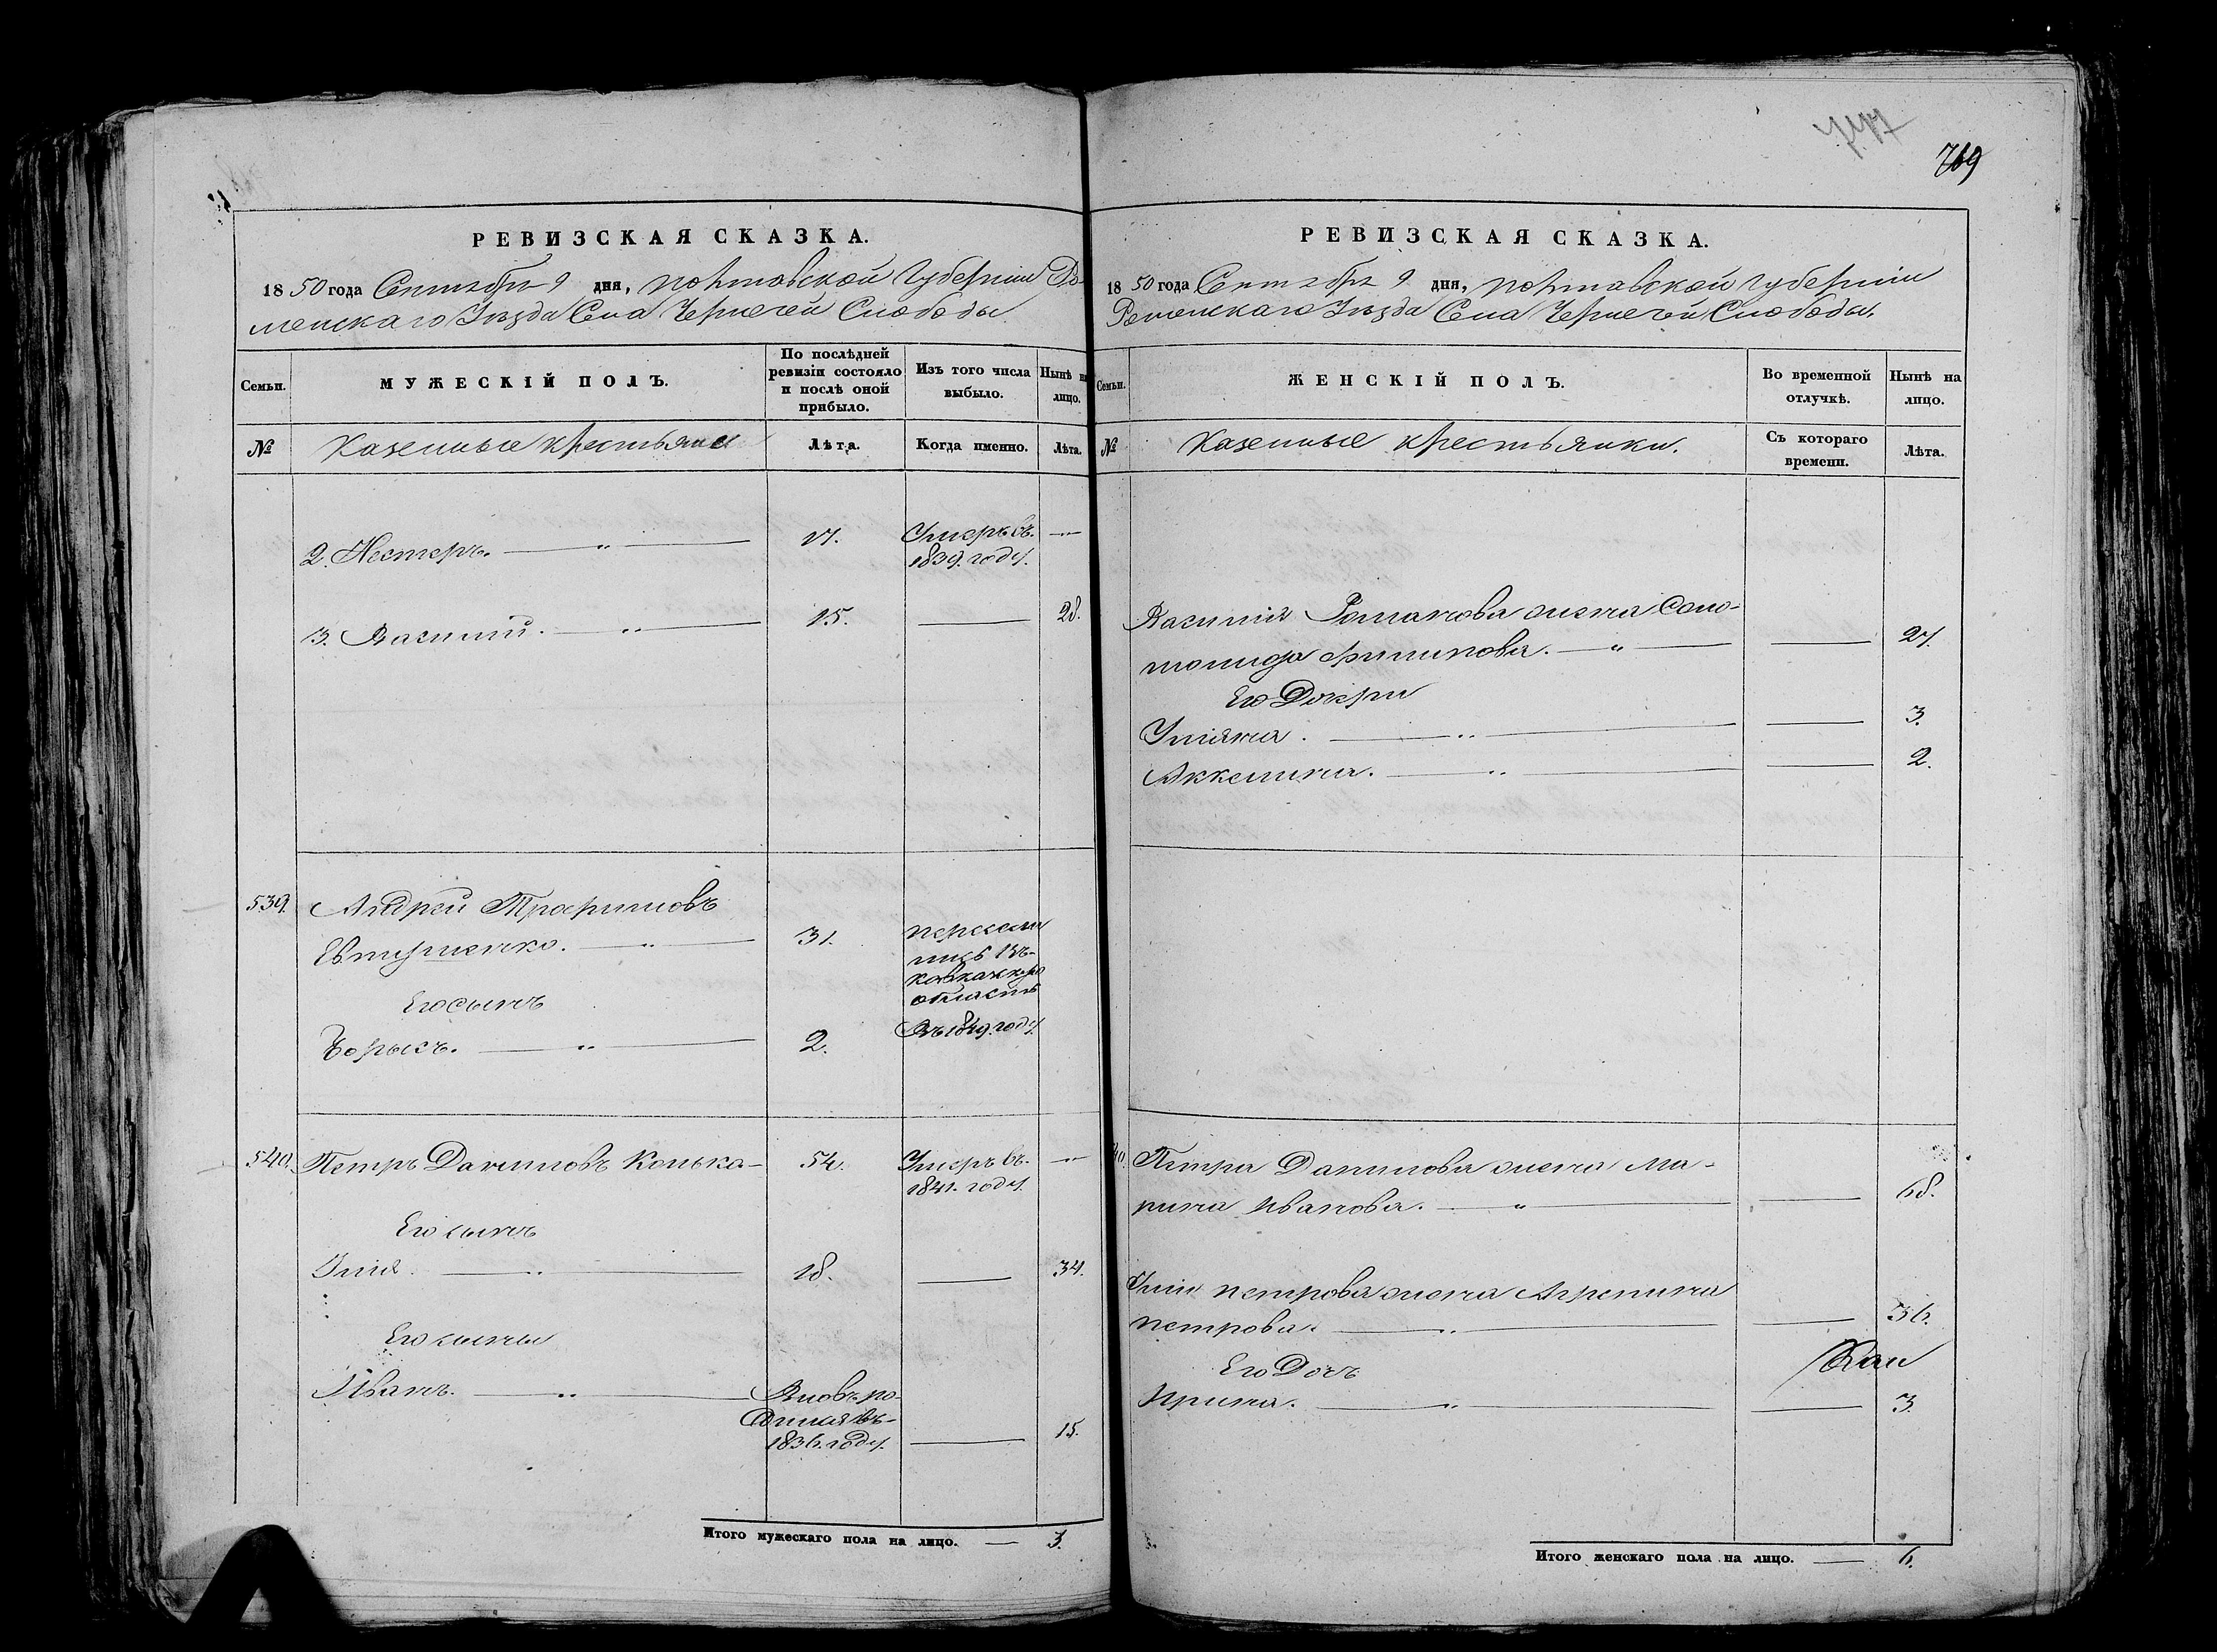 РЕВИЗСКАЯ СКАЗКА.
1850 года Сентября 9 дня, полтавской губернии Ро-
менскаго Уезда Села Чернечей Слободы
Семьи.
МУЖЕСКІЙ ПОЛЪ.
По послѣдней
ревизіи состояло
и послѣ оной
прибыло.
Изъ того числа
выбыло.
Нынѣ на
лицо.
№
Казенные крестьяне
Лѣта.
Когда именно.
Лѣта.
2. Нестеръ. 17. Умеръ въ.
1839. году.
3. Василий. 15. 28.
539. Андрей Трофимовъ
Евтушенко. 31. пересели
лись въ-
кавказскую
область
Его сынъ
Борысъ. 2. Въ 1849. году.
540. Петръ Даниловъ Конька- 54. Умеръ въ.
1841. году.
Его сынъ
Илия. 18. 34.
Его сыны
Иванъ. Вновь ро-
дился въ-
1836. году. 15.
Итого мужескаго пола на лицо. 3.
769
РЕВИЗСКАЯ СКАЗКА.
1850 года Сентября 9 дня, полтавской губернии
Роменскаго Уезда Села Чернечей Слободы.
Семьи.
ЖЕНСКІЙ ПОЛЪ.
Во временной
отлучкѣ.
Нынѣ на
лицо.
№
Казенные крестьянки.
Съ котораго
времени.
Лѣта.
Василия Романова жена Соло-
монида Филипова. 27.
Его Дочери
Улияна. 3.
Аккелина. 2.
40. Петра Данилова жена Ма-
рина Иванова. 68.
Илии петрова жена Агрепина
петрова. 36.
Его Дочь
Ирина. 3.
Итого женскаго пола на лицо. 6.